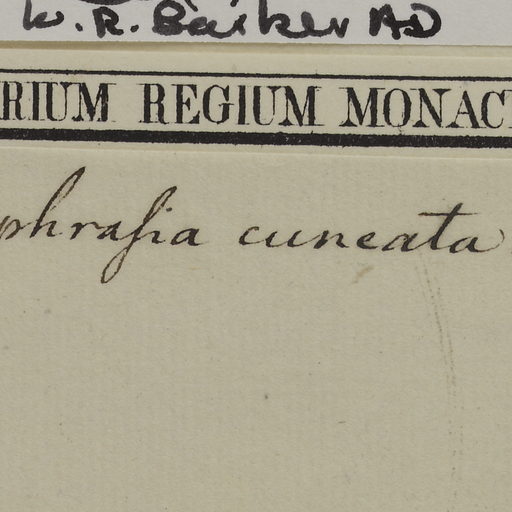 W. R. Barker AD
RIUM REGIUM MONAC
phraſia cuneata